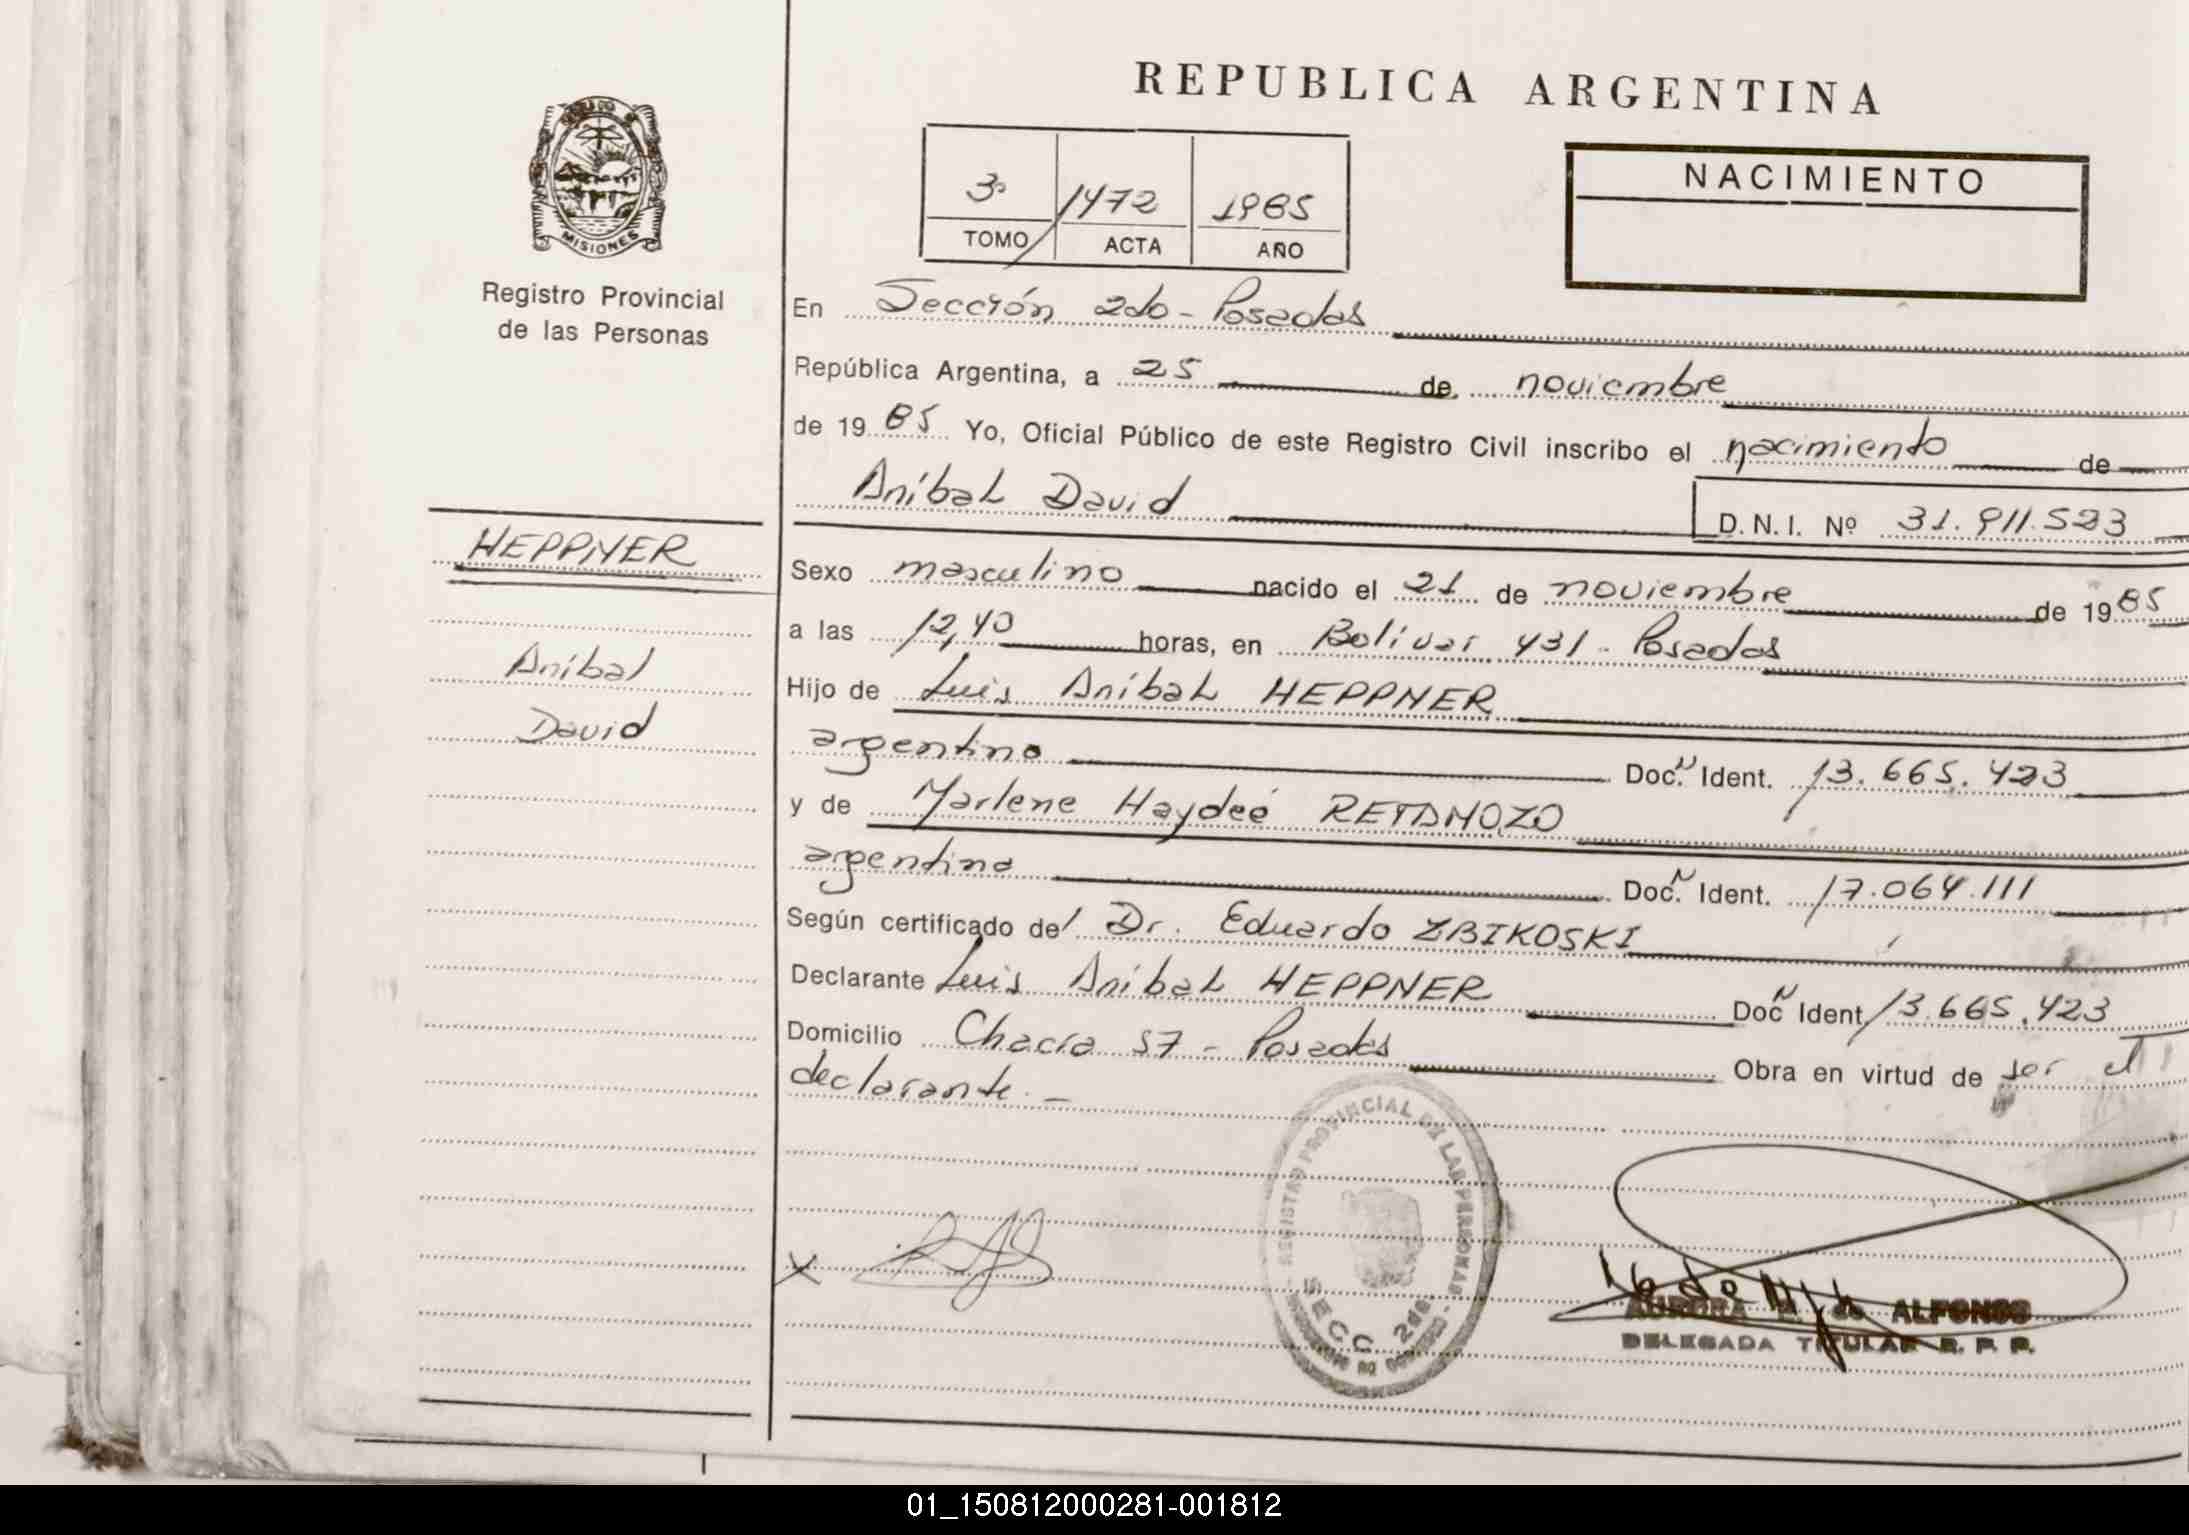 REPUBLICA ARGENTINA
MISIONES
Registro Provincial
de las Personas
3º 1472 1985
TOMO ACTA AÑO
NACIMIENTO
En Sección 2do - Posadas
República Argentina, a 25 de noviembre
de 19 85 Yo, Oficial Público de este Registro Civil inscribo el nacimiento de
Aníbal David D.N.I. Nº 31.911.523
HEPPNER
Aníbal
David
Sexo masculino nacido el 21 de noviembre de 19 85
a las 12,40 horas, en Bolívar 431 - Posadas
Hijo de Luis Aníbal HEPPNER
argentino Doc. N Ident. 13.665.423
y de Marlene Haydeé RETAMOZO
argentina Doc. N Ident. 17.064.111
Según certificado del Dr. Eduardo ZBIKOSKI
Declarante Luis Aníbal HEPPNER Doc N Ident 13.665.423
Domicilio Chacra 57 - Posadas Obra en virtud de ser el
declarante. -
REGISTRO PROVINCIAL DE LAS PERSONAS
SECC 2da.
X
AURORA de ALFONSO
DELEGADA TITULAR R. P. P.
01_150812000281-001812